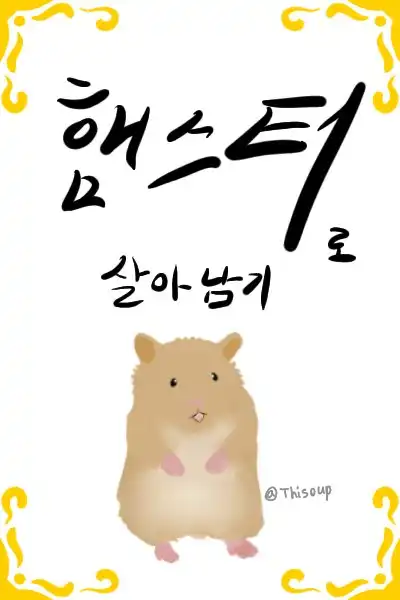 햄스터로
살아남기
@Thisoup